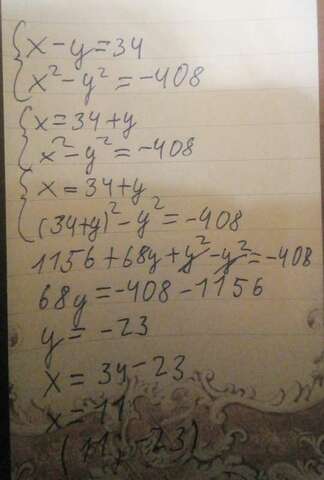 { x - y = 34
{ x² - y² = -408
{ x = 34 + y
{ x² - y² = -408
{ x = 34 + y
{ (34+y)² - y² = -408
1156 + 68y + y² - y² = -408
68y = -408 - 1156
y = -23
x = 34 - 23
x = 11
(11; -23)